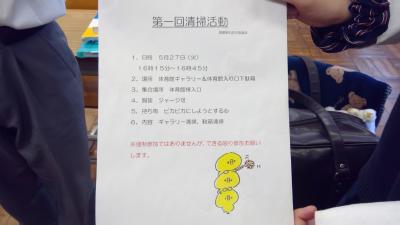 第一回清掃活動
1、日時　5月27日(火)
16時15分~16時45分
2、場所　体育館ギャラリー&体育館入り口下駄箱
3、集合場所　体育館棟入口
4、服装　ジャージ可
5、持ち物　ピカピカにしようとする心
6、内容　ギャラリー清掃、靴箱清掃
※強制参加ではありませんが、できる限り参加お願い
します。